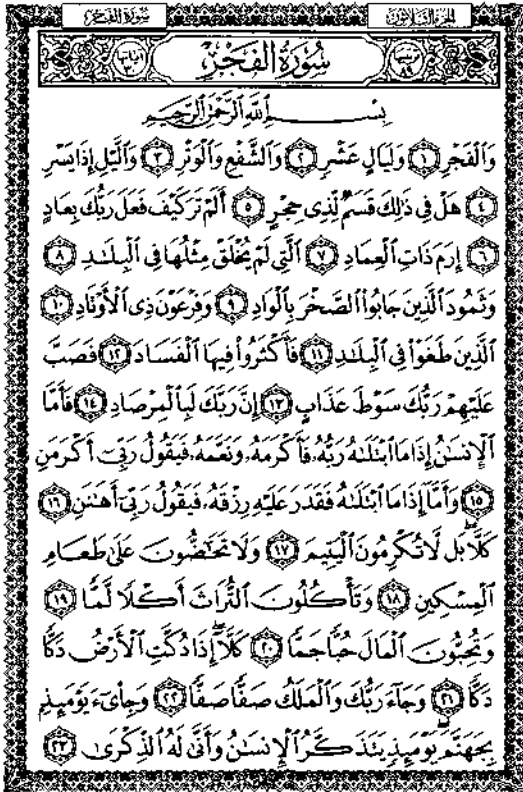 الجزء الثلاثون
سورة الفجر
ترتيبها ٨٩
سُورَةُ الفَجْرِ
آياتها ٣٠
بِسْمِ ٱللَّهِ ٱلرَّحْمَٰنِ ٱلرَّحِيمِ
وَٱلْفَجْرِ ۝١ وَلَيَالٍ عَشْرٍ ۝٢ وَٱلشَّفْعِ وَٱلْوَتْرِ ۝٣ وَٱلَّيْلِ إِذَا يَسْرِ
۝٤ هَلْ فِى ذَٰلِكَ قَسَمٌ لِّذِى حِجْرٍ ۝٥ أَلَمْ تَرَ كَيْفَ فَعَلَ رَبُّكَ بِعَادٍ
۝٦ إِرَمَ ذَاتِ ٱلْعِمَادِ ۝٧ ٱلَّتِى لَمْ يُخْلَقْ مِثْلُهَا فِى ٱلْبِلَٰدِ ۝٨
وَثَمُودَ ٱلَّذِينَ جَابُوا۟ ٱلصَّخْرَ بِٱلْوَادِ ۝٩ وَفِرْعَوْنَ ذِى ٱلْأَوْتَادِ ۝١٠
ٱلَّذِينَ طَغَوْا۟ فِى ٱلْبِلَٰدِ ۝١١ فَأَكْثَرُوا۟ فِيهَا ٱلْفَسَادَ ۝١٢ فَصَبَّ
عَلَيْهِمْ رَبُّكَ سَوْطَ عَذَابٍ ۝١٣ إِنَّ رَبَّكَ لَبِٱلْمِرْصَادِ ۝١٤ فَأَمَّا
ٱلْإِنسَٰنُ إِذَا مَا ٱبْتَلَىٰهُ رَبُّهُۥ فَأَكْرَمَهُۥ وَنَعَّمَهُۥ فَيَقُولُ رَبِّىٓ أَكْرَمَنِ
۝١٥ وَأَمَّآ إِذَا مَا ٱبْتَلَىٰهُ فَقَدَرَ عَلَيْهِ رِزْقَهُۥ فَيَقُولُ رَبِّىٓ أَهَٰنَنِ ۝١٦
كَلَّا ۖ بَل لَّا تُكْرِمُونَ ٱلْيَتِيمَ ۝١٧ وَلَا تَحَٰٓضُّونَ عَلَىٰ طَعَامِ
ٱلْمِسْكِينِ ۝١٨ وَتَأْكُلُونَ ٱلتُّرَاثَ أَكْلًا لَّمًّا ۝١٩
وَتُحِبُّونَ ٱلْمَالَ حُبًّا جَمًّا ۝٢٠ كَلَّآ إِذَا دُكَّتِ ٱلْأَرْضُ دَكًّا
دَكًّا ۝٢١ وَجَآءَ رَبُّكَ وَٱلْمَلَكُ صَفًّا صَفًّا ۝٢٢ وَجِا۟ىٓءَ يَوْمَئِذٍۭ
بِجَهَنَّمَ ۚ يَوْمَئِذٍ يَتَذَكَّرُ ٱلْإِنسَٰنُ وَأَنَّىٰ لَهُ ٱلذِّكْرَىٰ ۝٢٣